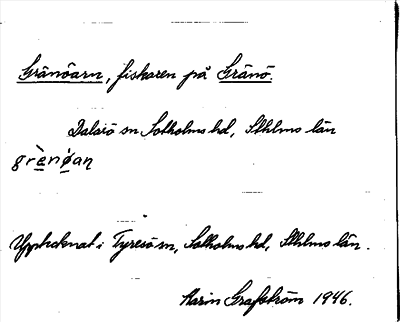 Gränöarn, fiskaren på Gränö.
Dalarö sn Sotholms hd, Sthlms län
grènöan
Upptecknat i Tyresö sn, Sotholms hd, Sthlms län.
Karin Grafström 1946.